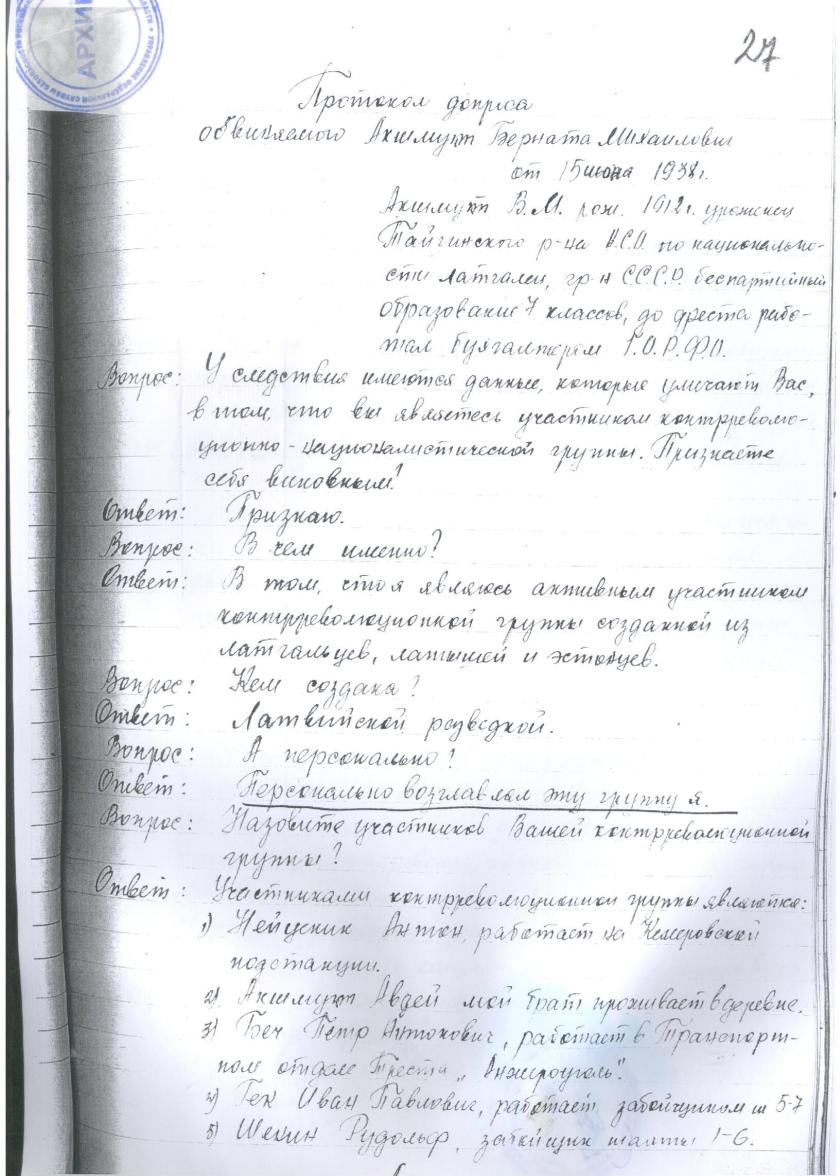 27
АРХИВ
Протокол допроса
обвиняемого Акшмукт Берната Михайлович
от 15 июна 1938г.
Акшмукт В.М. рож. 1912г. урожен
Тайгинского р-на Н.С.О. по национально-
сти латгалец, гр-н С.С.С.Р. беспартийный
образование 7 классов, до ареста рабо-
тал бухгалтером Г.О.Р.Ф.О.
Вопрос: У следствия имеются данные, которые уличают Вас,
в том, что вы являетесь участником контрреволю-
ционно-националистической группы. Признаете
себя виновным?
Ответ: Признаю.
Вопрос: В чем именно?
Ответ: В том, что я являюсь активным участником
контрреволюционной группы созданной из
латгальцев, латышей и эстонцев.
Вопрос: Кем создана?
Ответ: Латвийской разведкой.
Вопрос: А персонально?
Ответ: Персонально возглавлял эту группу я.
Вопрос: Назовите участников Вашей контрреволюционной
группы?
Ответ: Участниками контрреволюционной группы являются:
1) Нейцник Антон, работает на Кемеровской
подстанции.
2) Акшмукт Авдей мой брат проживает в деревне.
3) Беч Пётр Антонович, работает в Транспорт-
ном отделе Треста "Анжероуголь".
4) Гек Иван Павлович, работает забойщиком ш 5-7
5) Шекин Рудольф, забойщик шахты 1-6.